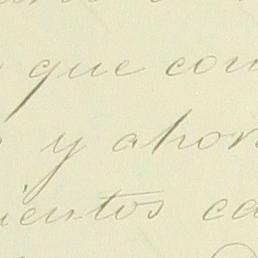 que con
y ahor
ientos ca